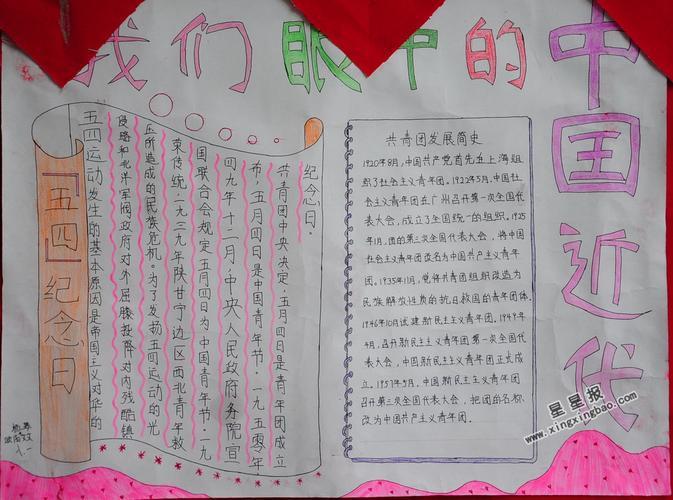 我们眼中的中国近代
「五四」纪念日
五四运动发生的基本原因是帝国主义对华的
侵略和北洋军阀政府对外屈膝投降对内残酷镇
压所造成的民族危机。为了发扬五四运动的光
荣传统，一九三九年陕甘宁边区西北青年救
国联合会规定五月四日为中国青年节。一九
四九年十二月，中央人民政府务院宣
布，五月四日是中国青年节。一九五〇年
共青团中央决定，五月四日是青年团成立
纪念日。
共青团发展简史
1920年8月，中国共产党首先在上海组
织了社会主义青年团。1922年5月，中国社
会主义青年团在广州召开第一次全国代
表大会，成立了全国统一的组织。1925
年1月，团的第三次全国代表大会，将中国
社会主义青年团改名为中国共产主义青年
团。1935年11月，党将共青团组织改造为
民族解放性质的抗日救国的青年团体。
1946年10月试建新民主主义青年团。1949年
4月，召开新民主主义青年团第一次全国
代表大会，中国新民主主义青年团正式成
立。1957年5月，中国新民主主义青年团
召开第三次全国代表大会，把团的名称
改为中国共产主义青年团。
星星报
www.xingxingbao.com